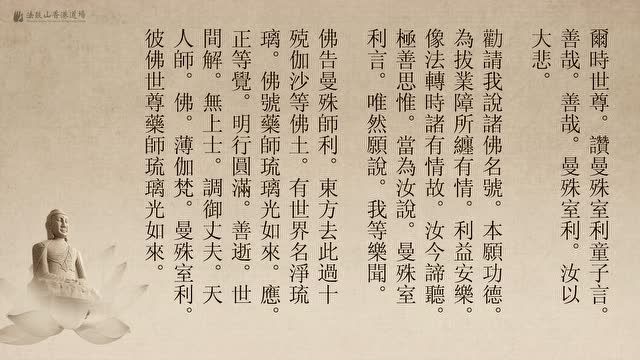 法鼓山香港道場
爾時世尊。讚曼殊室利童子言。
善哉。善哉。曼殊室利。汝以
大悲。
勸請我說諸佛名號。本願功德。
為拔業障所纏有情。利益安樂。
像法轉時諸有情故。汝今諦聽。
極善思惟。當為汝說。曼殊室
利言。唯然願說。我等樂聞。
佛告曼殊師利。東方去此過十
殑伽沙等佛土。有世界名淨琉
璃。佛號藥師琉璃光如來。應。
正等覺。明行圓滿。善逝。世
間解。無上士。調御丈夫。天
人師。佛。薄伽梵。曼殊室利。
彼佛世尊藥師琉璃光如來。